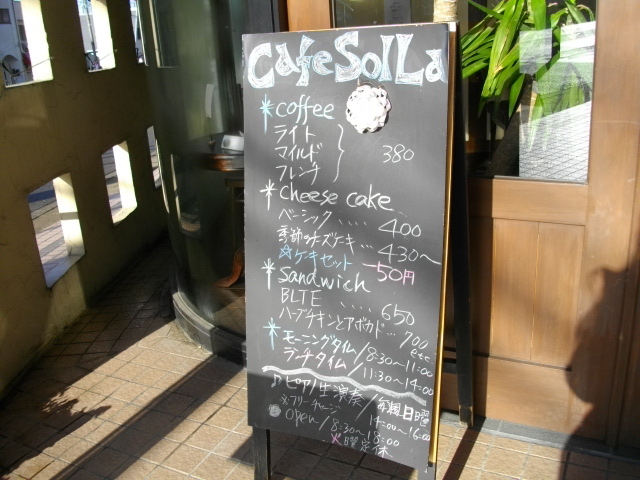 Cafe SolLa
*coffee
ライト
マイルド } 380
フレンチ
*cheese cake
ベーシック.... 400
季節のチーズケーキ... 430～
☆ケーキセット -50円
*Sandwich
BLTE ..... 650
ハーブチキンとアボカド... 700 etc
*モーニングタイム/8:30～11:00
ランチタイム/11:30～14:00
♪ピアノ生演奏/毎週日曜
※フリーチャージ 14:00～16:00
open/8:30～18:00
火曜定休